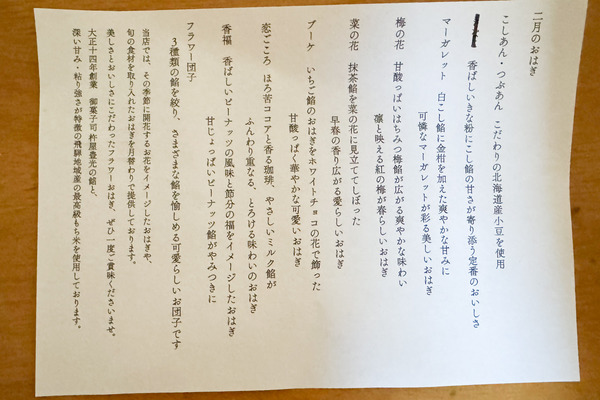 二月のおはぎ
こしあん・つぶあん　こだわりの北海道産小豆を使用
香ばしいきな粉にこし餡の甘さが寄り添う定番のおいしさ
マーガレット　白こし餡に金柑を加えた爽やかな甘みに
可憐なマーガレットが彩る美しいおはぎ
梅の花　甘酸っぱいはちみつ梅餡が広がる爽やかな味わい
凛と映える紅の梅が春らしいおはぎ
菜の花　抹茶餡を菜の花に見立ててしぼった
早春の香り広がる愛らしいおはぎ
ブーケ　いちご餡のおはぎをホワイトチョコの花で飾った
甘酸っぱく華やかな可愛いおはぎ
恋ごころ　ほろ苦ココアと香る珈琲、やさしいミルク餡が
ふんわり重なる、とろける味わいのおはぎ
香福　香ばしいピーナッツの風味と節分の福をイメージしたおはぎ
甘じょっぱいピーナッツ餡がやみつきに
フラワー団子
3種類の餡を絞り、さまざまな餡を愉しめる可愛らしいお団子です
当店では、その季節に開花するお花をイメージしたおはぎや、
旬の食材を取り入れたおはぎを月替わりで提供しております。
美しさとおいしさにこだわったフラワーおはぎ、ぜひ一度ご賞味くださいませ。
大正十四年創業　御菓子司杵屋豊光の餡と、
深い甘み・粘り強さが特徴の飛騨地域産の最高級もち米を使用しております。